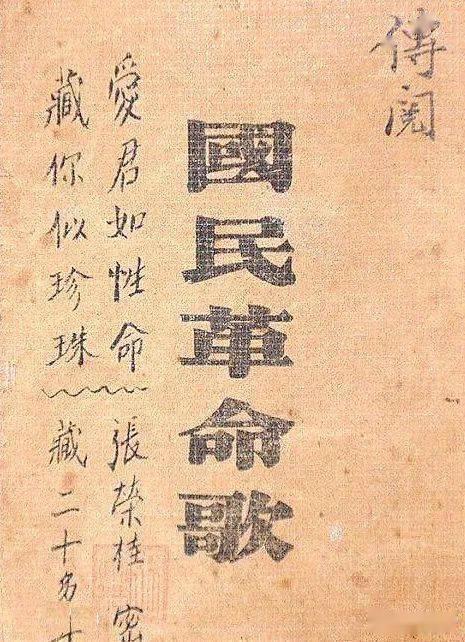 傳閱
國民革命歌
愛君如性命 張榮桂 密
藏你似珍珠 藏二十多